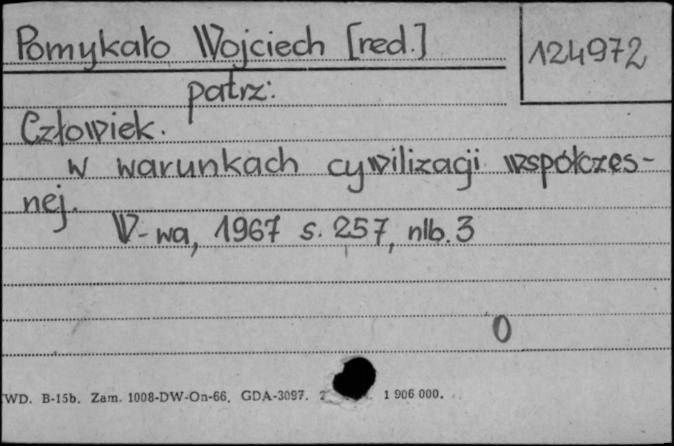 Pomykało Wojciech [red.]
124972
patrz:
Człowiek.
w warunkach cywilizacji współczes-
nej.
W-wa, 1967 s. 257, nlb. 3
0
WD. B-15b. Zam. 1008-DW-On-66. GDA-3097. 1 906 000.